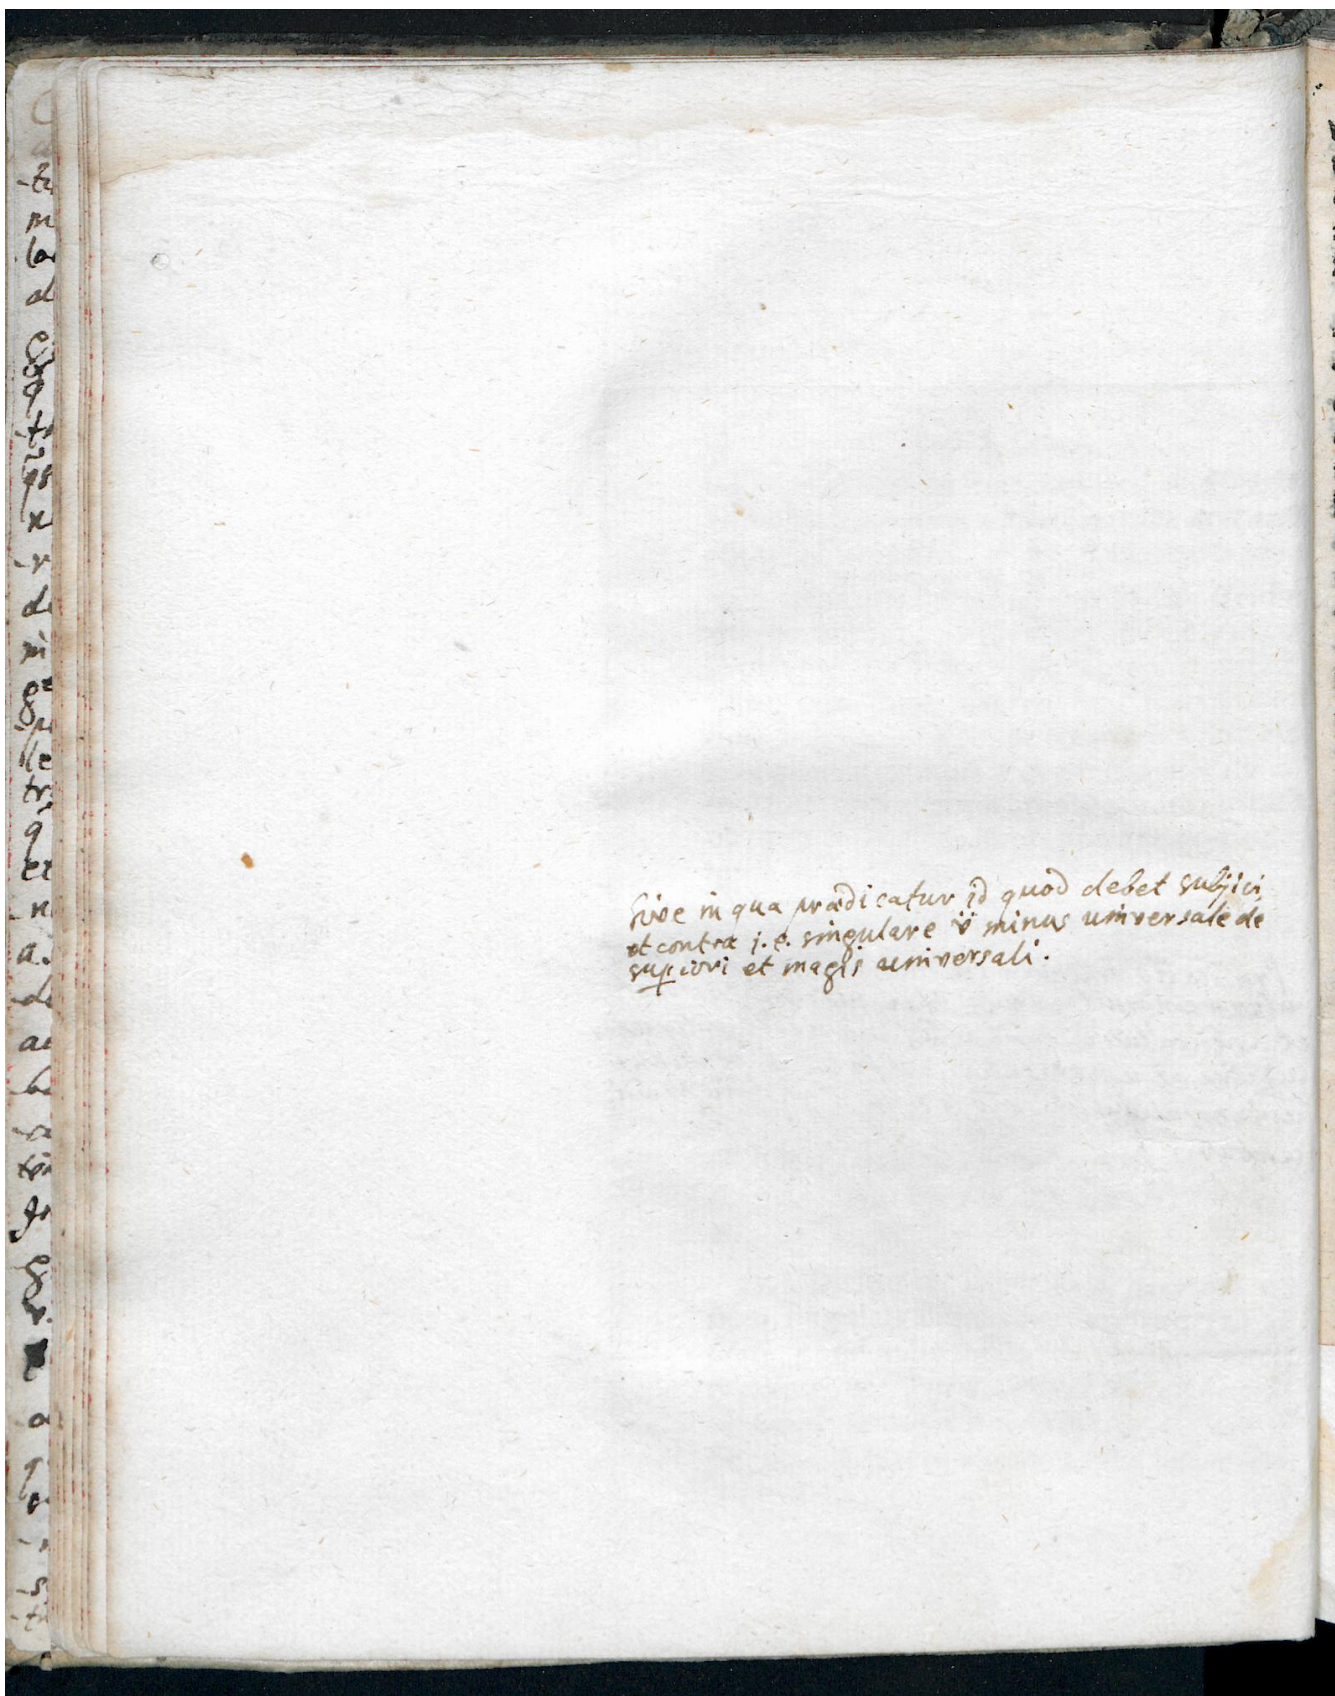 sive in qua prædicatur id quod debet subjici,
et contra j. e. singulare v̈ minus universale de
superiori et magis universali.